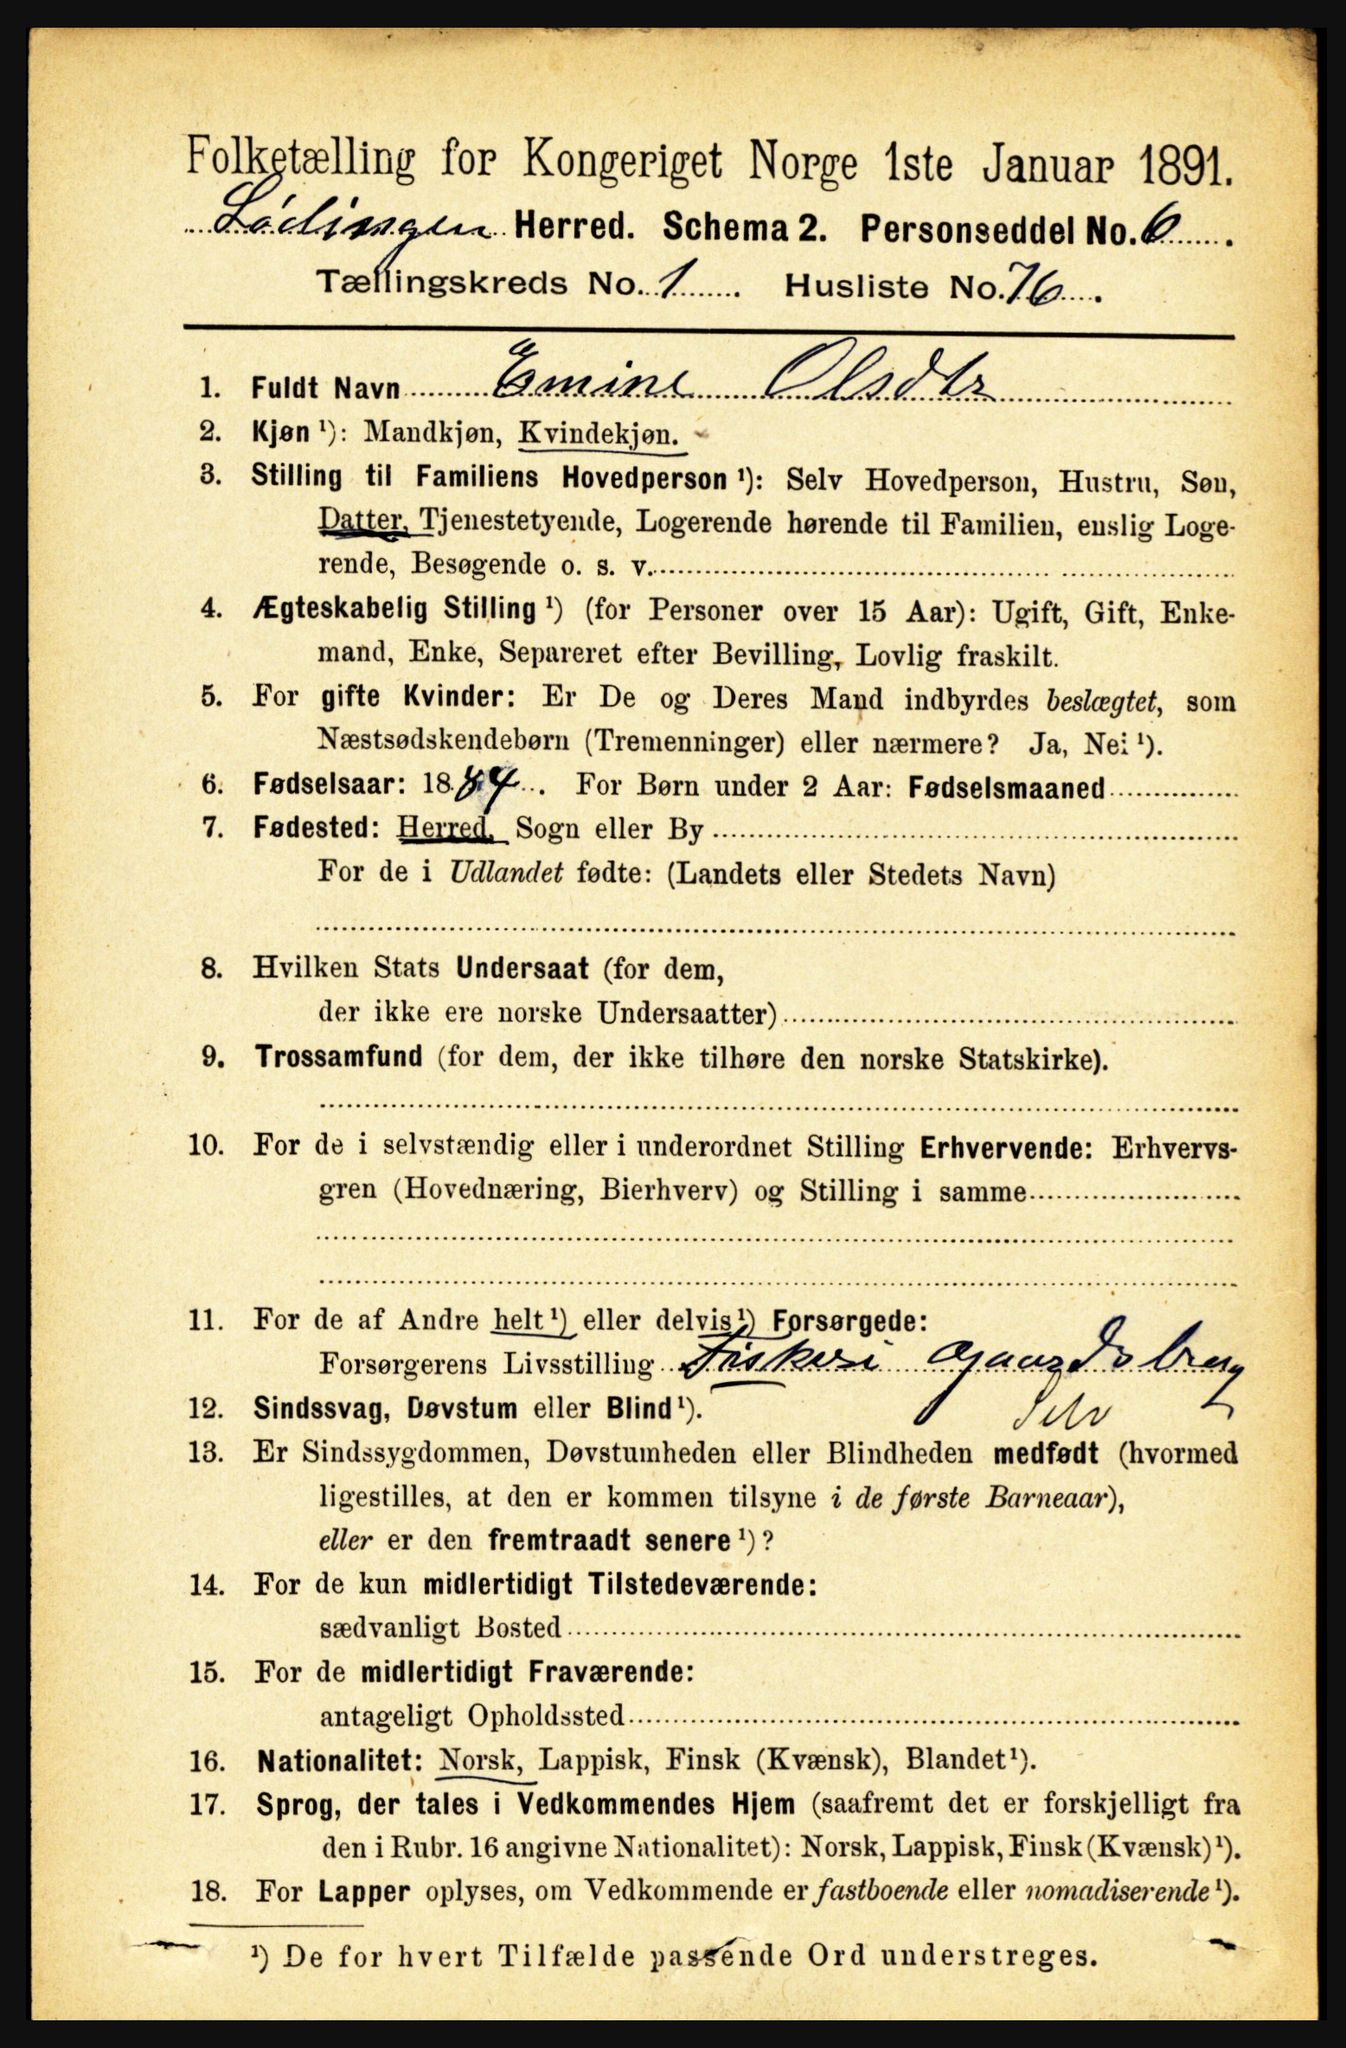 Folketælling for Kongeriget Norge 1ste Januar 1891.
Lødingen Herred. Schema 2. Personseddel No. 6
Tællingskreds No. 1 Husliste No. 76
1. Fuldt Navn Emine Olsdtr
2. Kjøn ¹): Mandkjøn, Kvindekjøn.
3. Stilling til Familiens Hovedperson ¹): Selv Hovedperson, Hustru, Søn,
Datter, Tjenestetyende, Logerende hørende til Familien, enslig Loge-
rende, Besøgende o. s. v.
4. Ægteskabelig Stilling ¹) (for Personer over 15 Aar): Ugift, Gift, Enke-
mand, Enke, Separeret efter Bevilling, Lovlig fraskilt.
5. For gifte Kvinder: Er De og Deres Mand indbyrdes beslægtet, som
Næstsødskendebørn (Tremenninger) eller nærmere? Ja, Nei ¹).
6. Fødselsaar: 1884. For Børn under 2 Aar: Fødselsmaaned
7. Fødested: Herred, Sogn eller By
For de i Udlandet fødte: (Landets eller Stedets Navn)
8. Hvilken Stats Undersaat (for dem,
der ikke ere norske Undersaatter)
9. Trossamfund (for dem, der ikke tilhøre den norske Statskirke).
10. For de i selvstændig eller i underordnet Stilling Erhvervende: Erhvervs-
gren (Hovednæring, Bierhverv) og Stilling i samme
11. For de af Andre helt ¹) eller delvis ¹) Forsørgede:
Forsørgerens Livsstilling Fiskeri Gaardsbrug
12. Sindssvag, Døvstum eller Blind ¹). Selv
13. Er Sindssygdommen, Døvstumheden eller Blindheden medfødt (hvormed
ligestilles, at den er kommen tilsyne i de første Barneaar),
eller er den fremtraadt senere ¹)?
14. For de kun midlertidigt Tilstedeværende:
sædvanligt Bosted
15. For de midlertidigt Fraværende:
antageligt Opholdssted
16. Nationalitet: Norsk, Lappisk, Finsk (Kvænsk), Blandet ¹).
17. Sprog, der tales i Vedkommendes Hjem (saafremt det er forskjelligt fra
den i Rubr. 16 angivne Nationalitet): Norsk, Lappisk, Finsk (Kvænsk) ¹).
18. For Lapper oplyses, om Vedkommende er fastboende eller nomadiserende ¹).
¹) De for hvert Tilfælde passende Ord understreges.